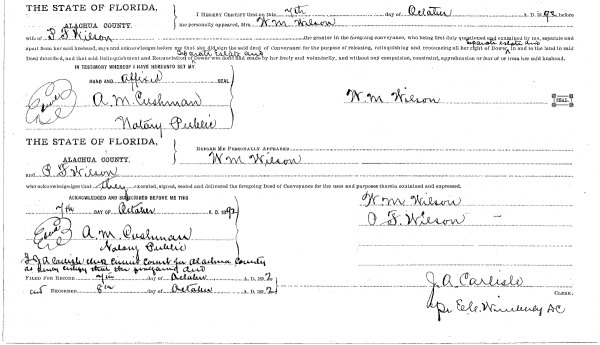 THE STATE OF FLORIDA,
ALACHUA COUNTY.
I HEREBY CERTIFY that on this 7th day of October A. D. 1892 before
me personally appeared, Mrs. W. M. Wilson
wife of P F Wilson the grantor in the foregoing Deed, who being first duly questioned and examined by me, separate and
separate estate and
apart from her said husband, says and acknowledges before me that she did sign the said deed of Conveyance for the purpose of releasing, relinquishing and renouncing all her right of Dower, in and to the land in said
separate estate and
Deed described, and that said Relinquishment and Renunciation of Dower was done and made by her freely and voluntarily, and without any compulsion, constraint, apprehension or fear of or from her said husband.
IN TESTIMONY WHEREOF I HAVE HEREUNTO SET MY
HAND AND affixed SEAL
A. M. Cushman
Notary Public
W. M Wilson SEAL
THE STATE OF FLORIDA,
ALACHUA COUNTY.
BEFORE ME PERSONALLY APPEARED
W M Wilson
and P F Wilson
who acknowledges that they executed, signed, sealed and delivered the foregoing Deed of Conveyance for the uses and purposes therein contained and expressed.
ACKNOWLEDGED AND SUBSCRIBED BEFORE ME THIS
7th DAY OF October A. D. 1892
A. M. Cushman
Notary Public
W. M. Wilson
P F. Wilson
I J A Carlisle Clerk Circuit Court for Alachua County
do hereby certify that the foregoing deed
FILED FOR RECORD 7th day of October A. D. 1892
and RECORDED 8th day of October A. D. 1892
J. A. Carlisle
CLERK.
Pr DC